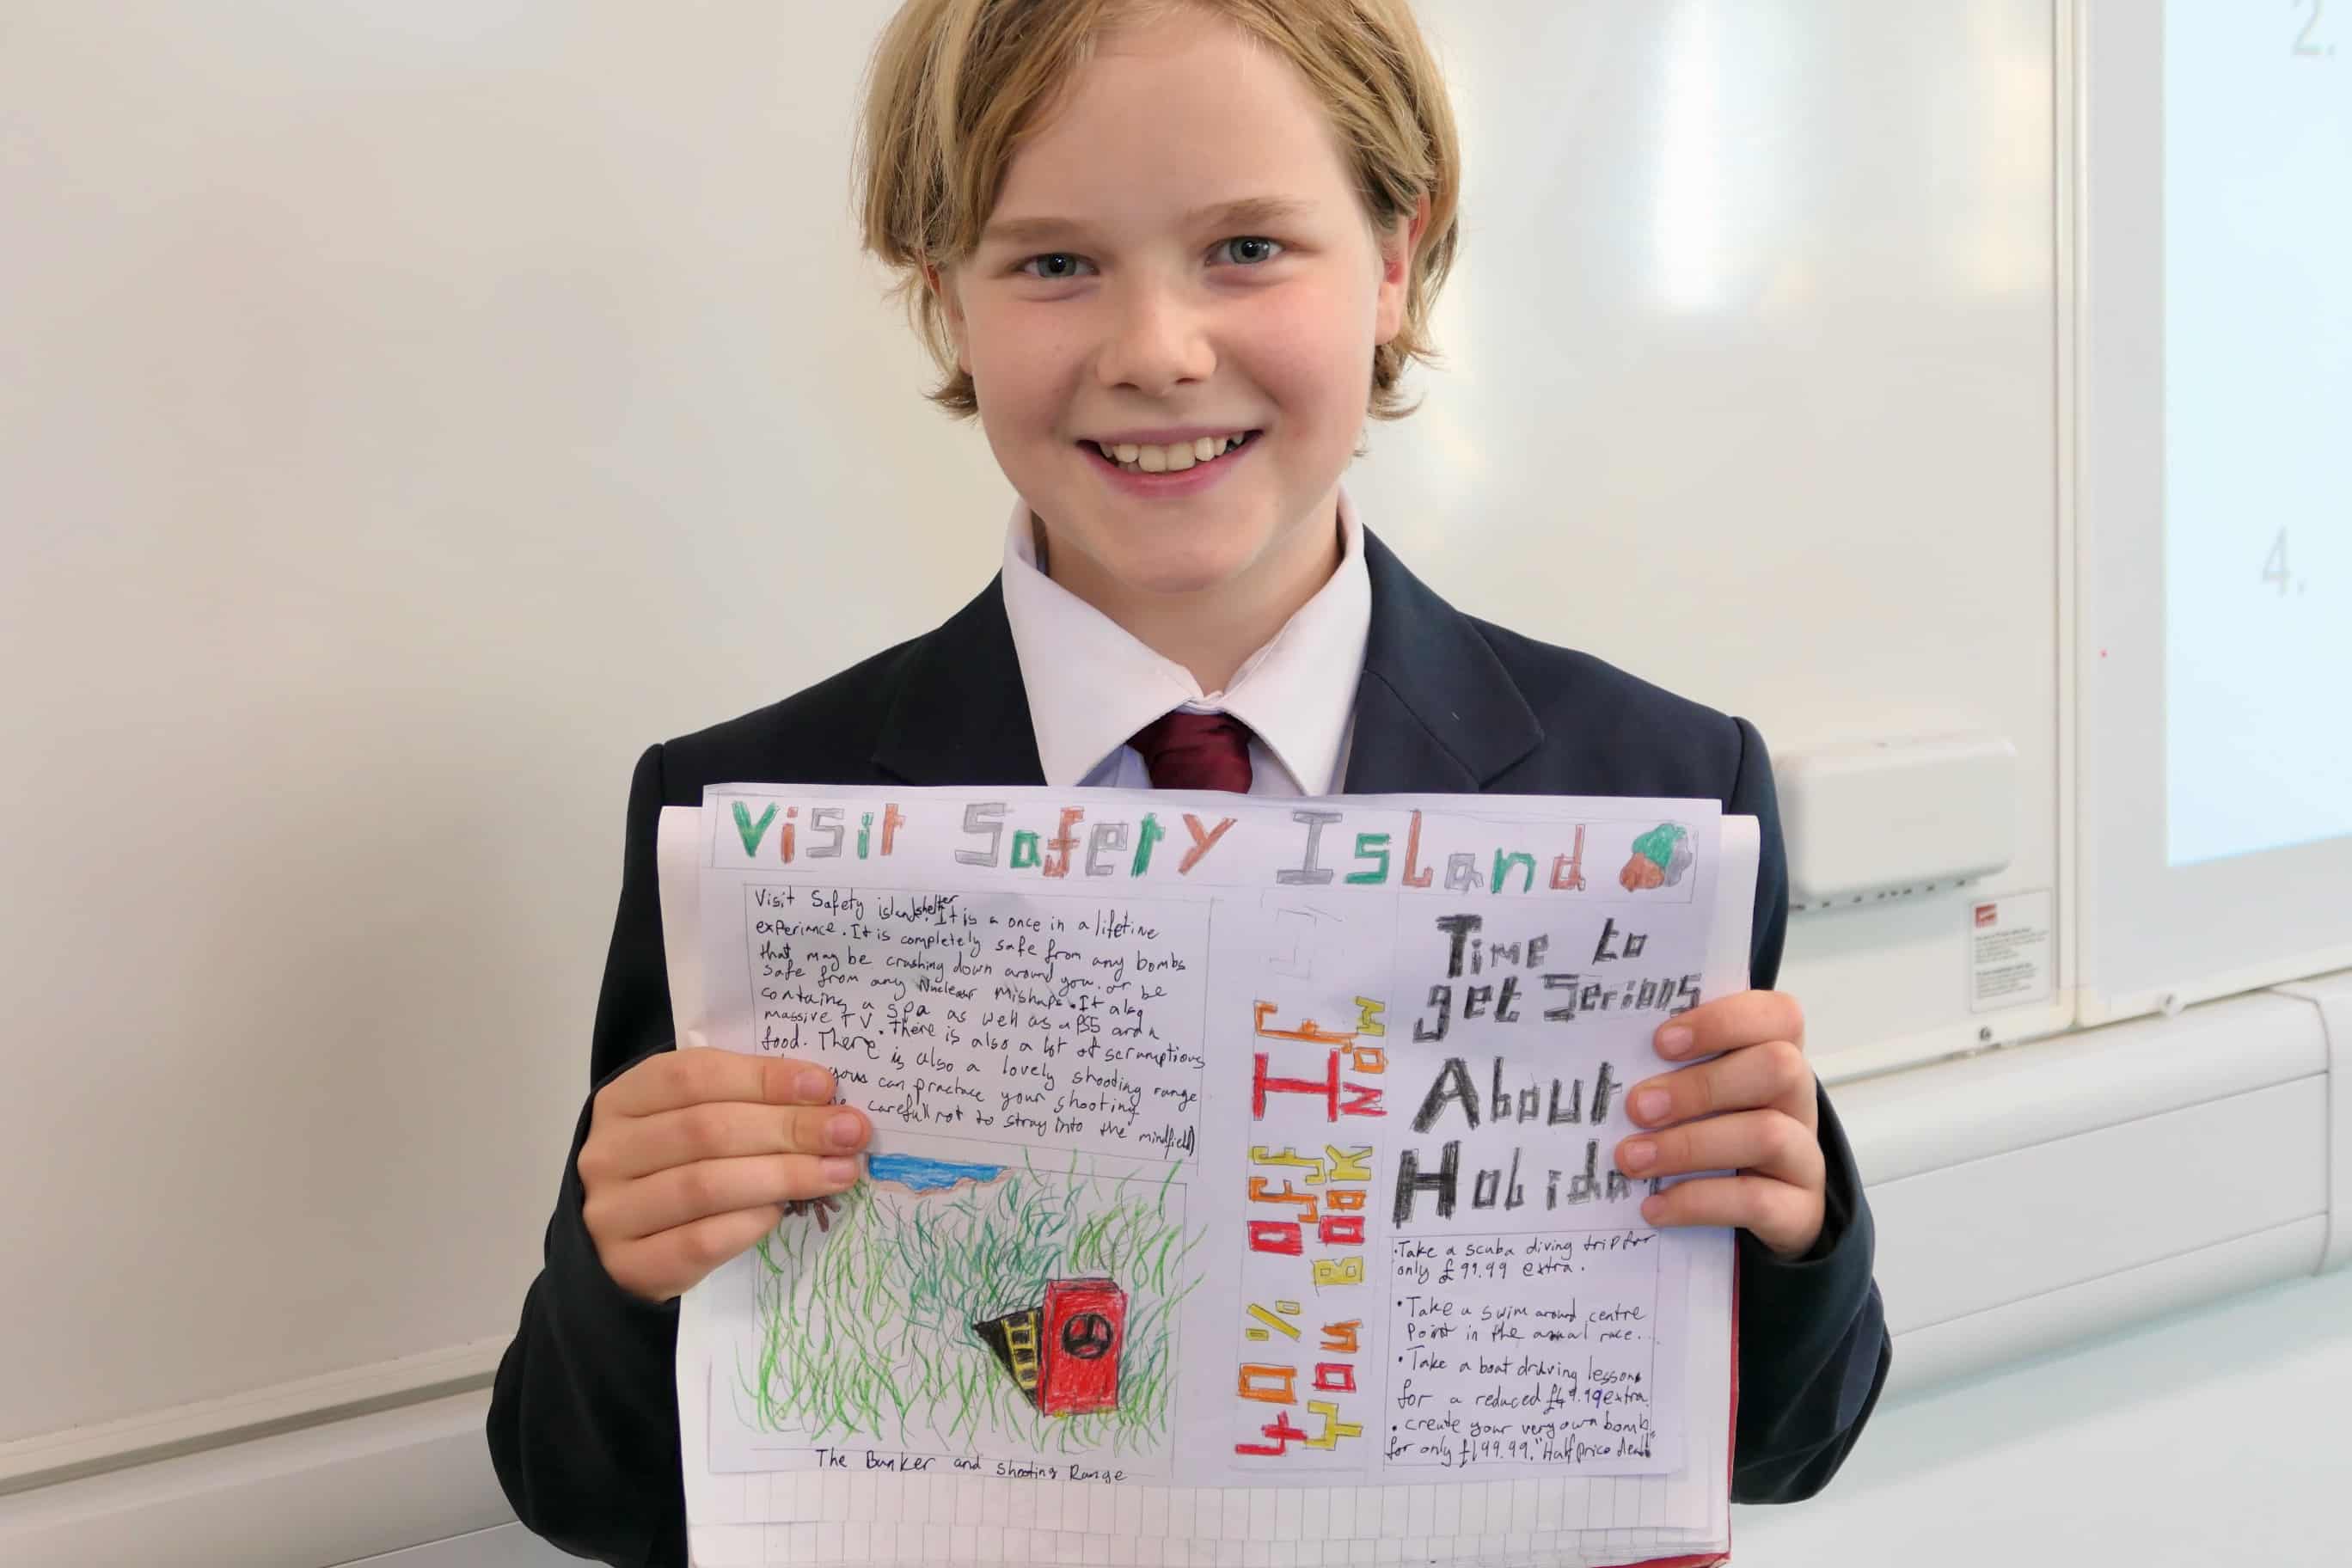 Visit Safety Island
Visit Safety island shelter. It is a once in a lifetime
experiance. It is completely safe from any bombs
that may be crashing down around you. or be
safe from any Nuclear Mishaps. It also
contains a spa as well as a PS5 and a
massive TV. There is also a lot of scrumptious
food. There is also a lovely shooting range
yous can practace your shooting
carefull not to stray into the mindfield)
The Bunker and Shooting Range
40% OFF IF
You BOOK NOW
Time to
get Serious
About
Holiday
• Take a scuba diving trip for
only £99.99 extra.
• Take a swim around centre
Point in the anual race.
• Take a boat driving lessons
for a reduced £49.99 extra.
• create your very own bomb
for only £199.99. "Half price deal!
2.
4.